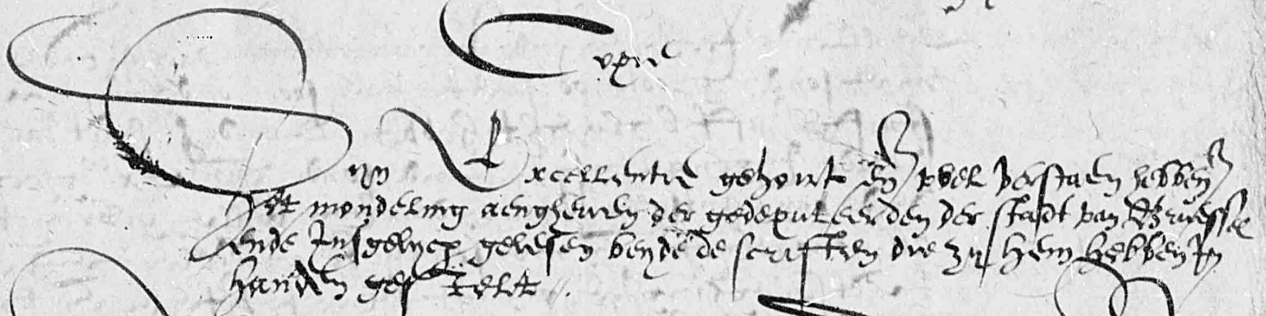 Copie
Syn Excellentie gehoirt en̄ wel verstaen hebben̄
Het mondeling aengheven der gedeputeerden der stadt van Bruessel
ende Insgelycx gelesen beyde de scriften die zy hem hebben In
handen gestelt